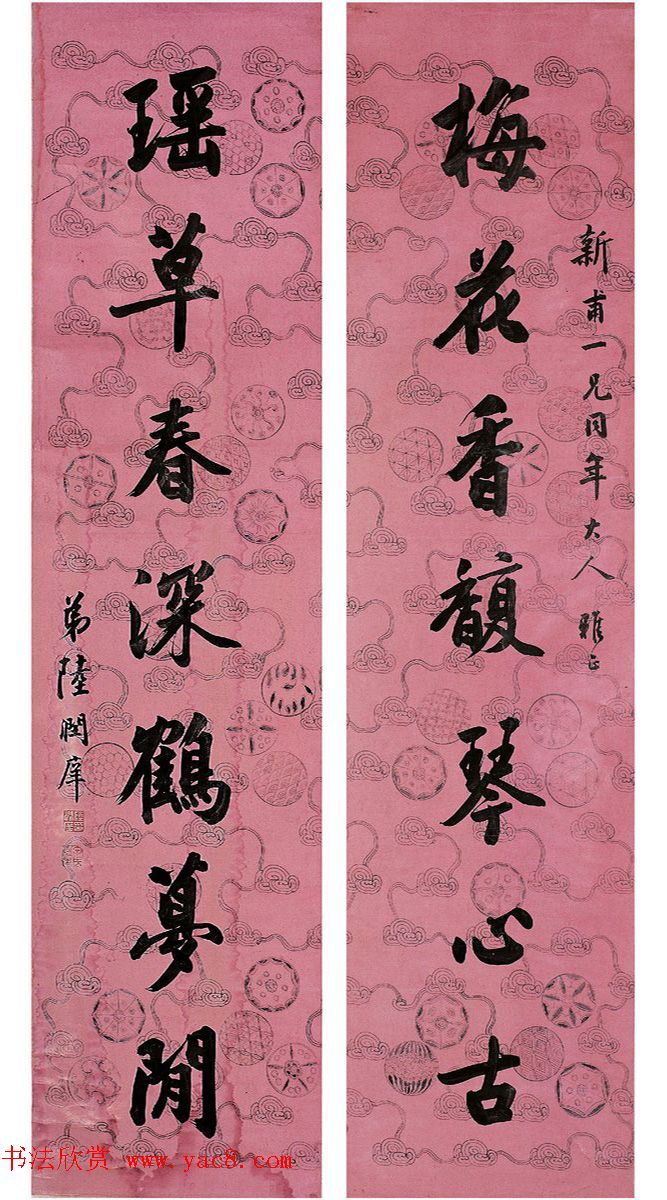 新甫一兄同年大人雅正
梅花香馥琴心古
瑶草春深鶴夢閒
弟陸潤庠
书法欣赏 www.yac8.com